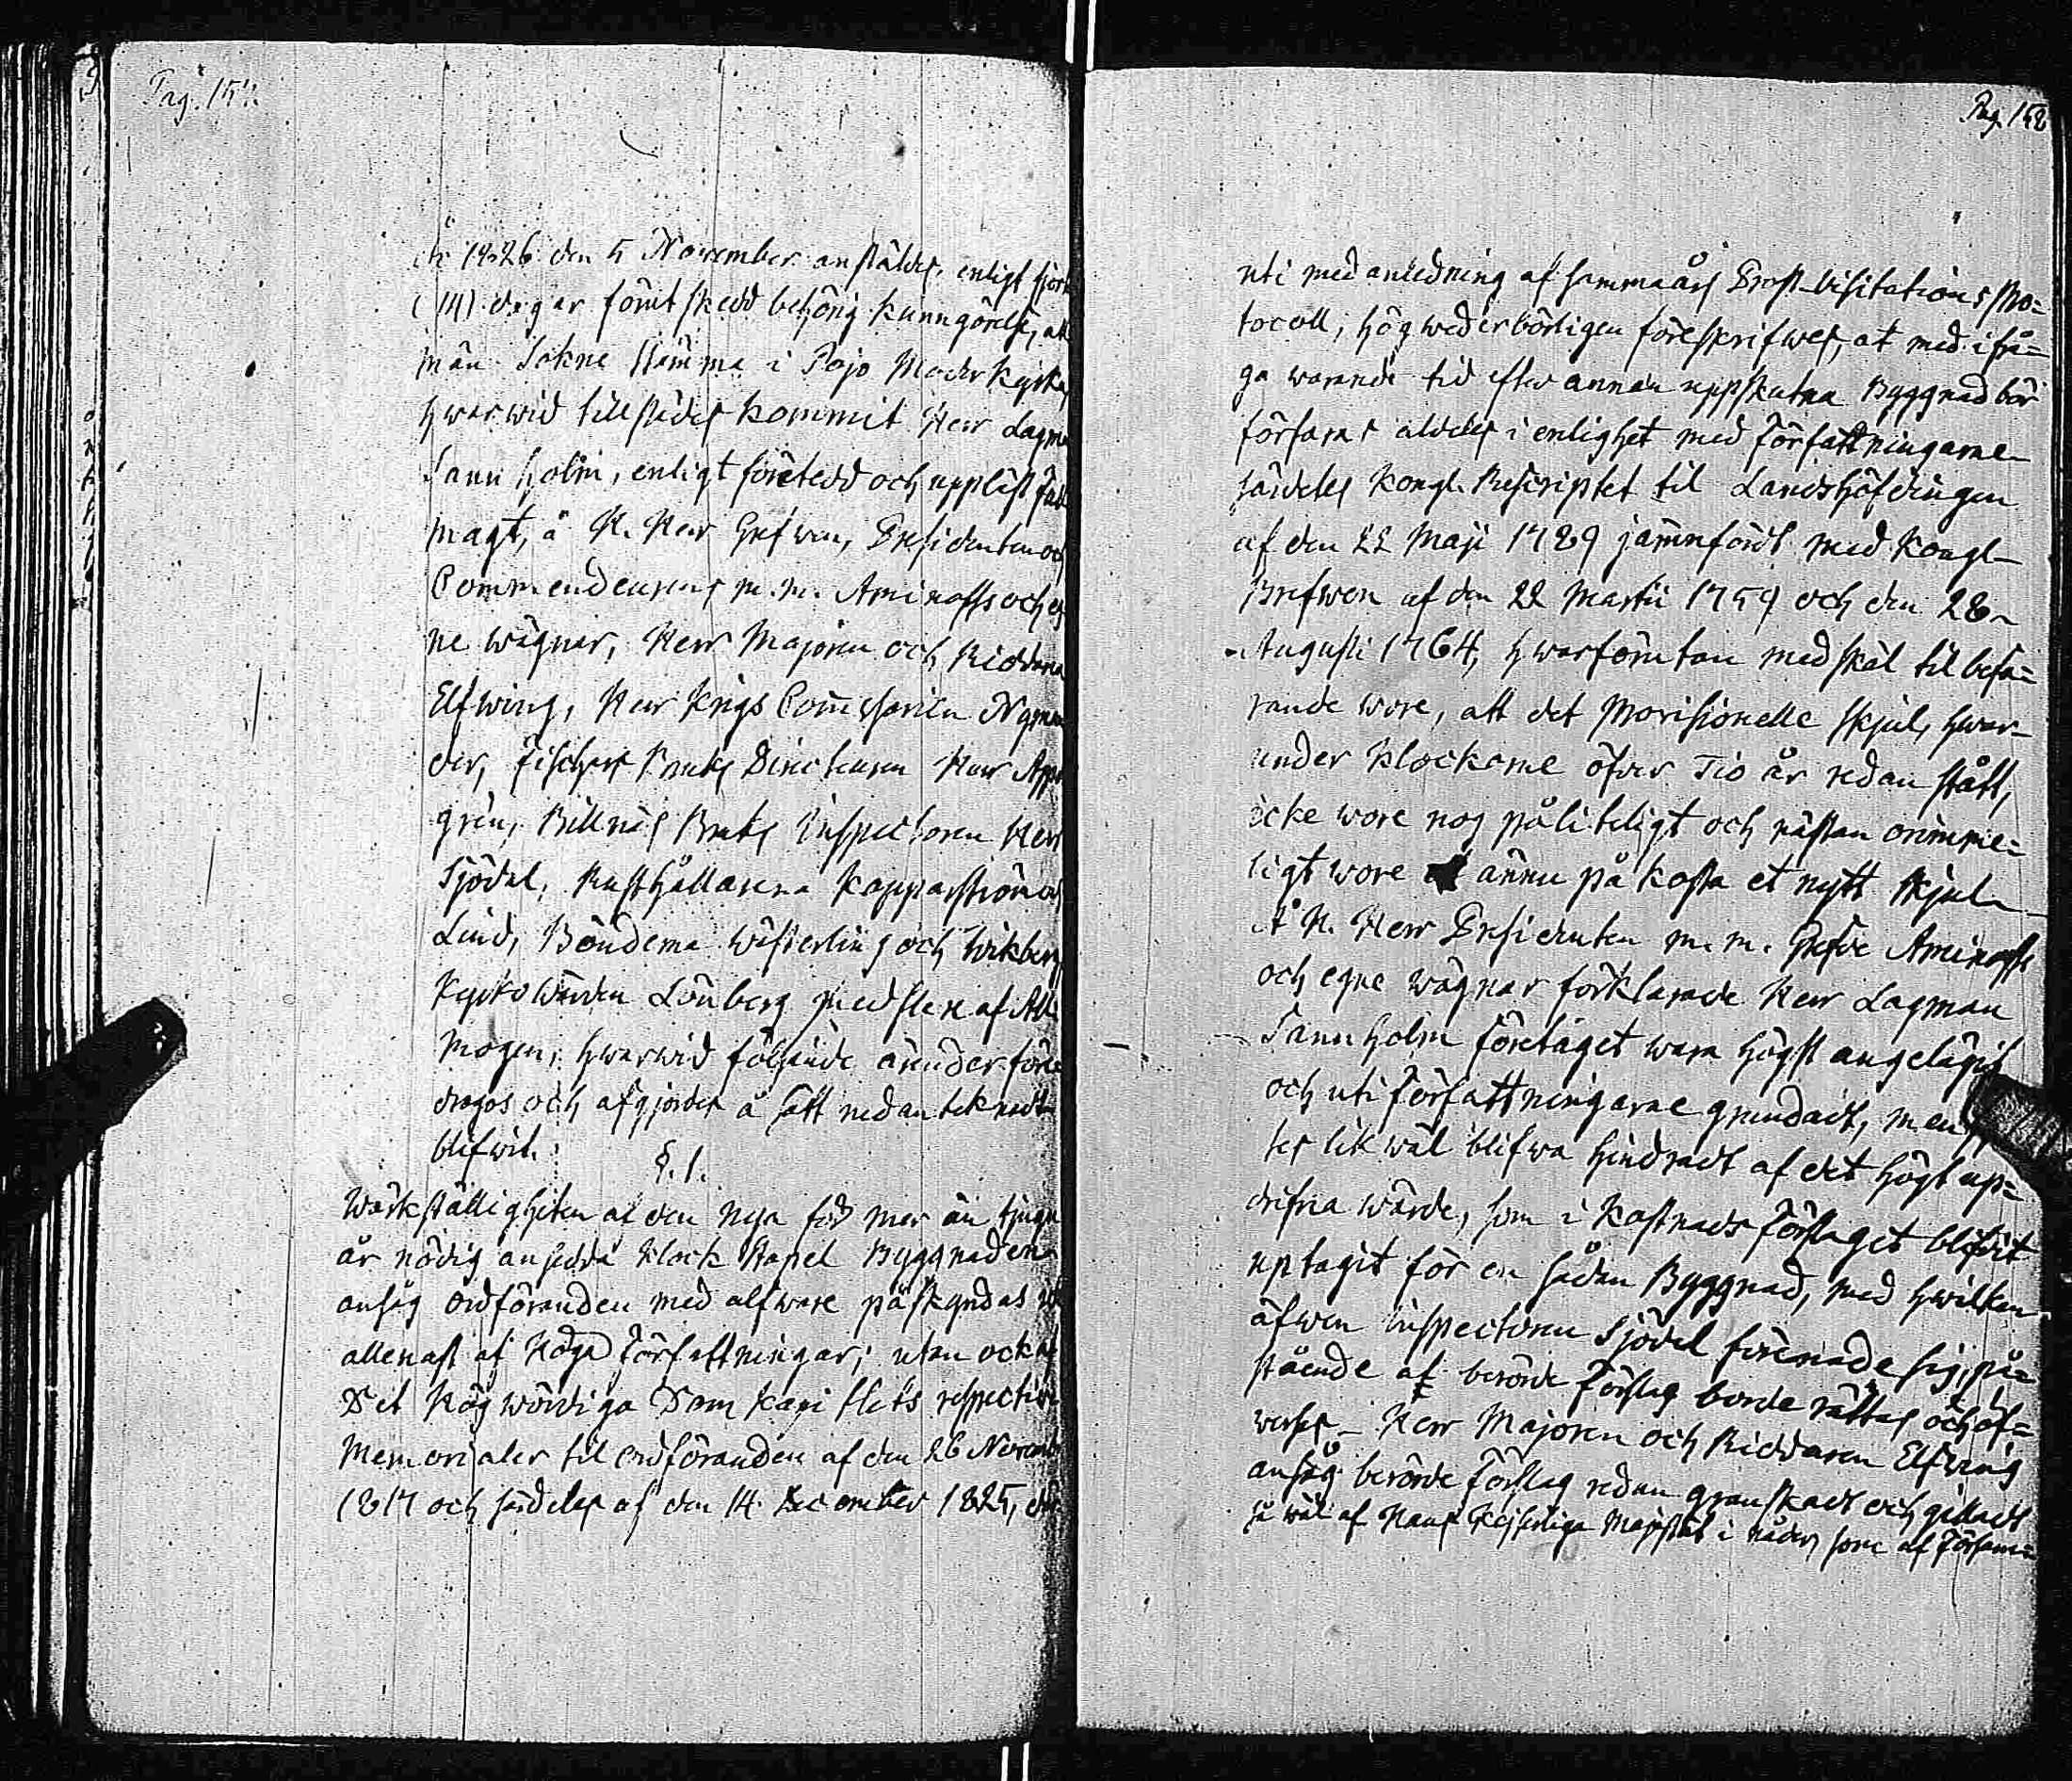 Pag. 157.
År 1826 den 5 November anstäldes, enligt fjort
(14) dagar förut skedd behörig kunngörelse, all
män Sokne Stämma i Pojo Moderkyrka,
hwarwid tillstädes kommit Herr Lagman
Sannholm, enligt företedd och upplist full
magt, å H. Herr Grefwen, Presidenten och
Commendeurens m.m. Aminoffs och eg
ne wägnar, Herr Majoren och Riddaren
Elfwing, Herr Krigs Commissarien Nyman
der, Fiskars Bruks Directeuren Herr App
gren, Billnäs Bruks Inspectoren Herr
Sjödal, Rusthållarena Kapparström och
Lind, Bönderna Wästerling och Wikberg
Kyrkowärden Lönberg med flere af All
mogen, hwarwid följande ärender före
drogos och afgjordes å sätt nedantecknadt
blifwit.
§. 1.
Wärkställigheten af den nya för mer än tjugu
år nödig ansedda Klock Stapel Byggnaden
ansåg ordföranden med alfware påskyndas
allenast af Höga Författningar; utan ock af
Det Högwördiga Domkapitlets respective
Memorialer til ordföranden af den 26 Novemb
1817 och särdeles af den 14 December 1825, der
Pag. 158
uti med anledning af sammaårs Prost-Visitations Pro=
tocoll, högwederbörligen föreskrifwes, at med ifrå=
ga warande tid efter annan uppskutna Byggnad bör
förfaras aldeles i enlighet med Författningarne
särdeles Kongl. Rescriptet til Landshöfdingen
af den 22 Maji 1729 jämnfördt med Kongl
Brefwen af den 22 Martii 1759 och den 28
Augusti 1764, hwarförutan med skäl til befa=
rande wore, att det Provisionelle skjul, hwar
under Klockorne öfwer Tio år redan stått,
icke wore nog pålitligt och nästan onimme=
ligt wore ännu på kosta et nytt skjul
Å H. Herr Presidenten m.m. Grefve Aminoffs
och egne wägnar förklarade Herr Lagman
Sannholm företaget wara högst angelägit
och uti Författningarne grundadt, men
tes likwäl blifwa hindradt af det högt up=
drifna wärde, som i Kostnads Förslaget blifvit
uptagit för en sådan Byggnad, med hwilken
äfwen Inspectoren Sjödal förenade sig, på=
stående at berörde Förslag borde rättas och öf=
werses – Herr Majoren och Riddaren Elfwing
ansåg berörde Förslag redan granskadt och gilladt
så wäl af Hans Kejserliga Majestät i nåder som af Församl=